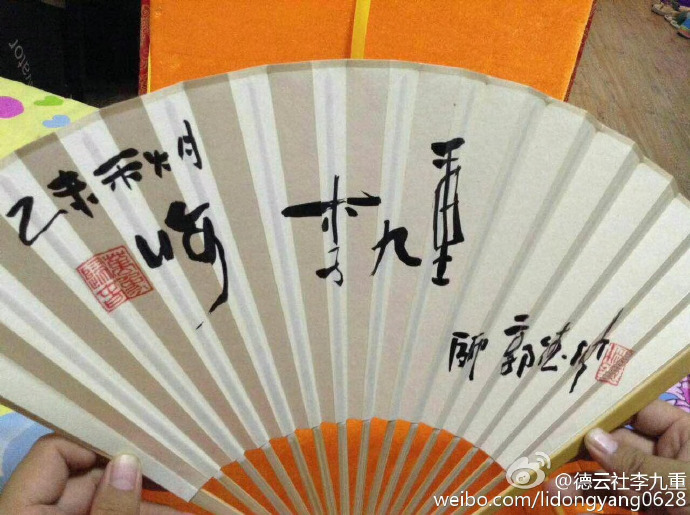 乙未秋月
李九重
師 郭德纲
@德云社李九重
weibo.com/lidongyang0628